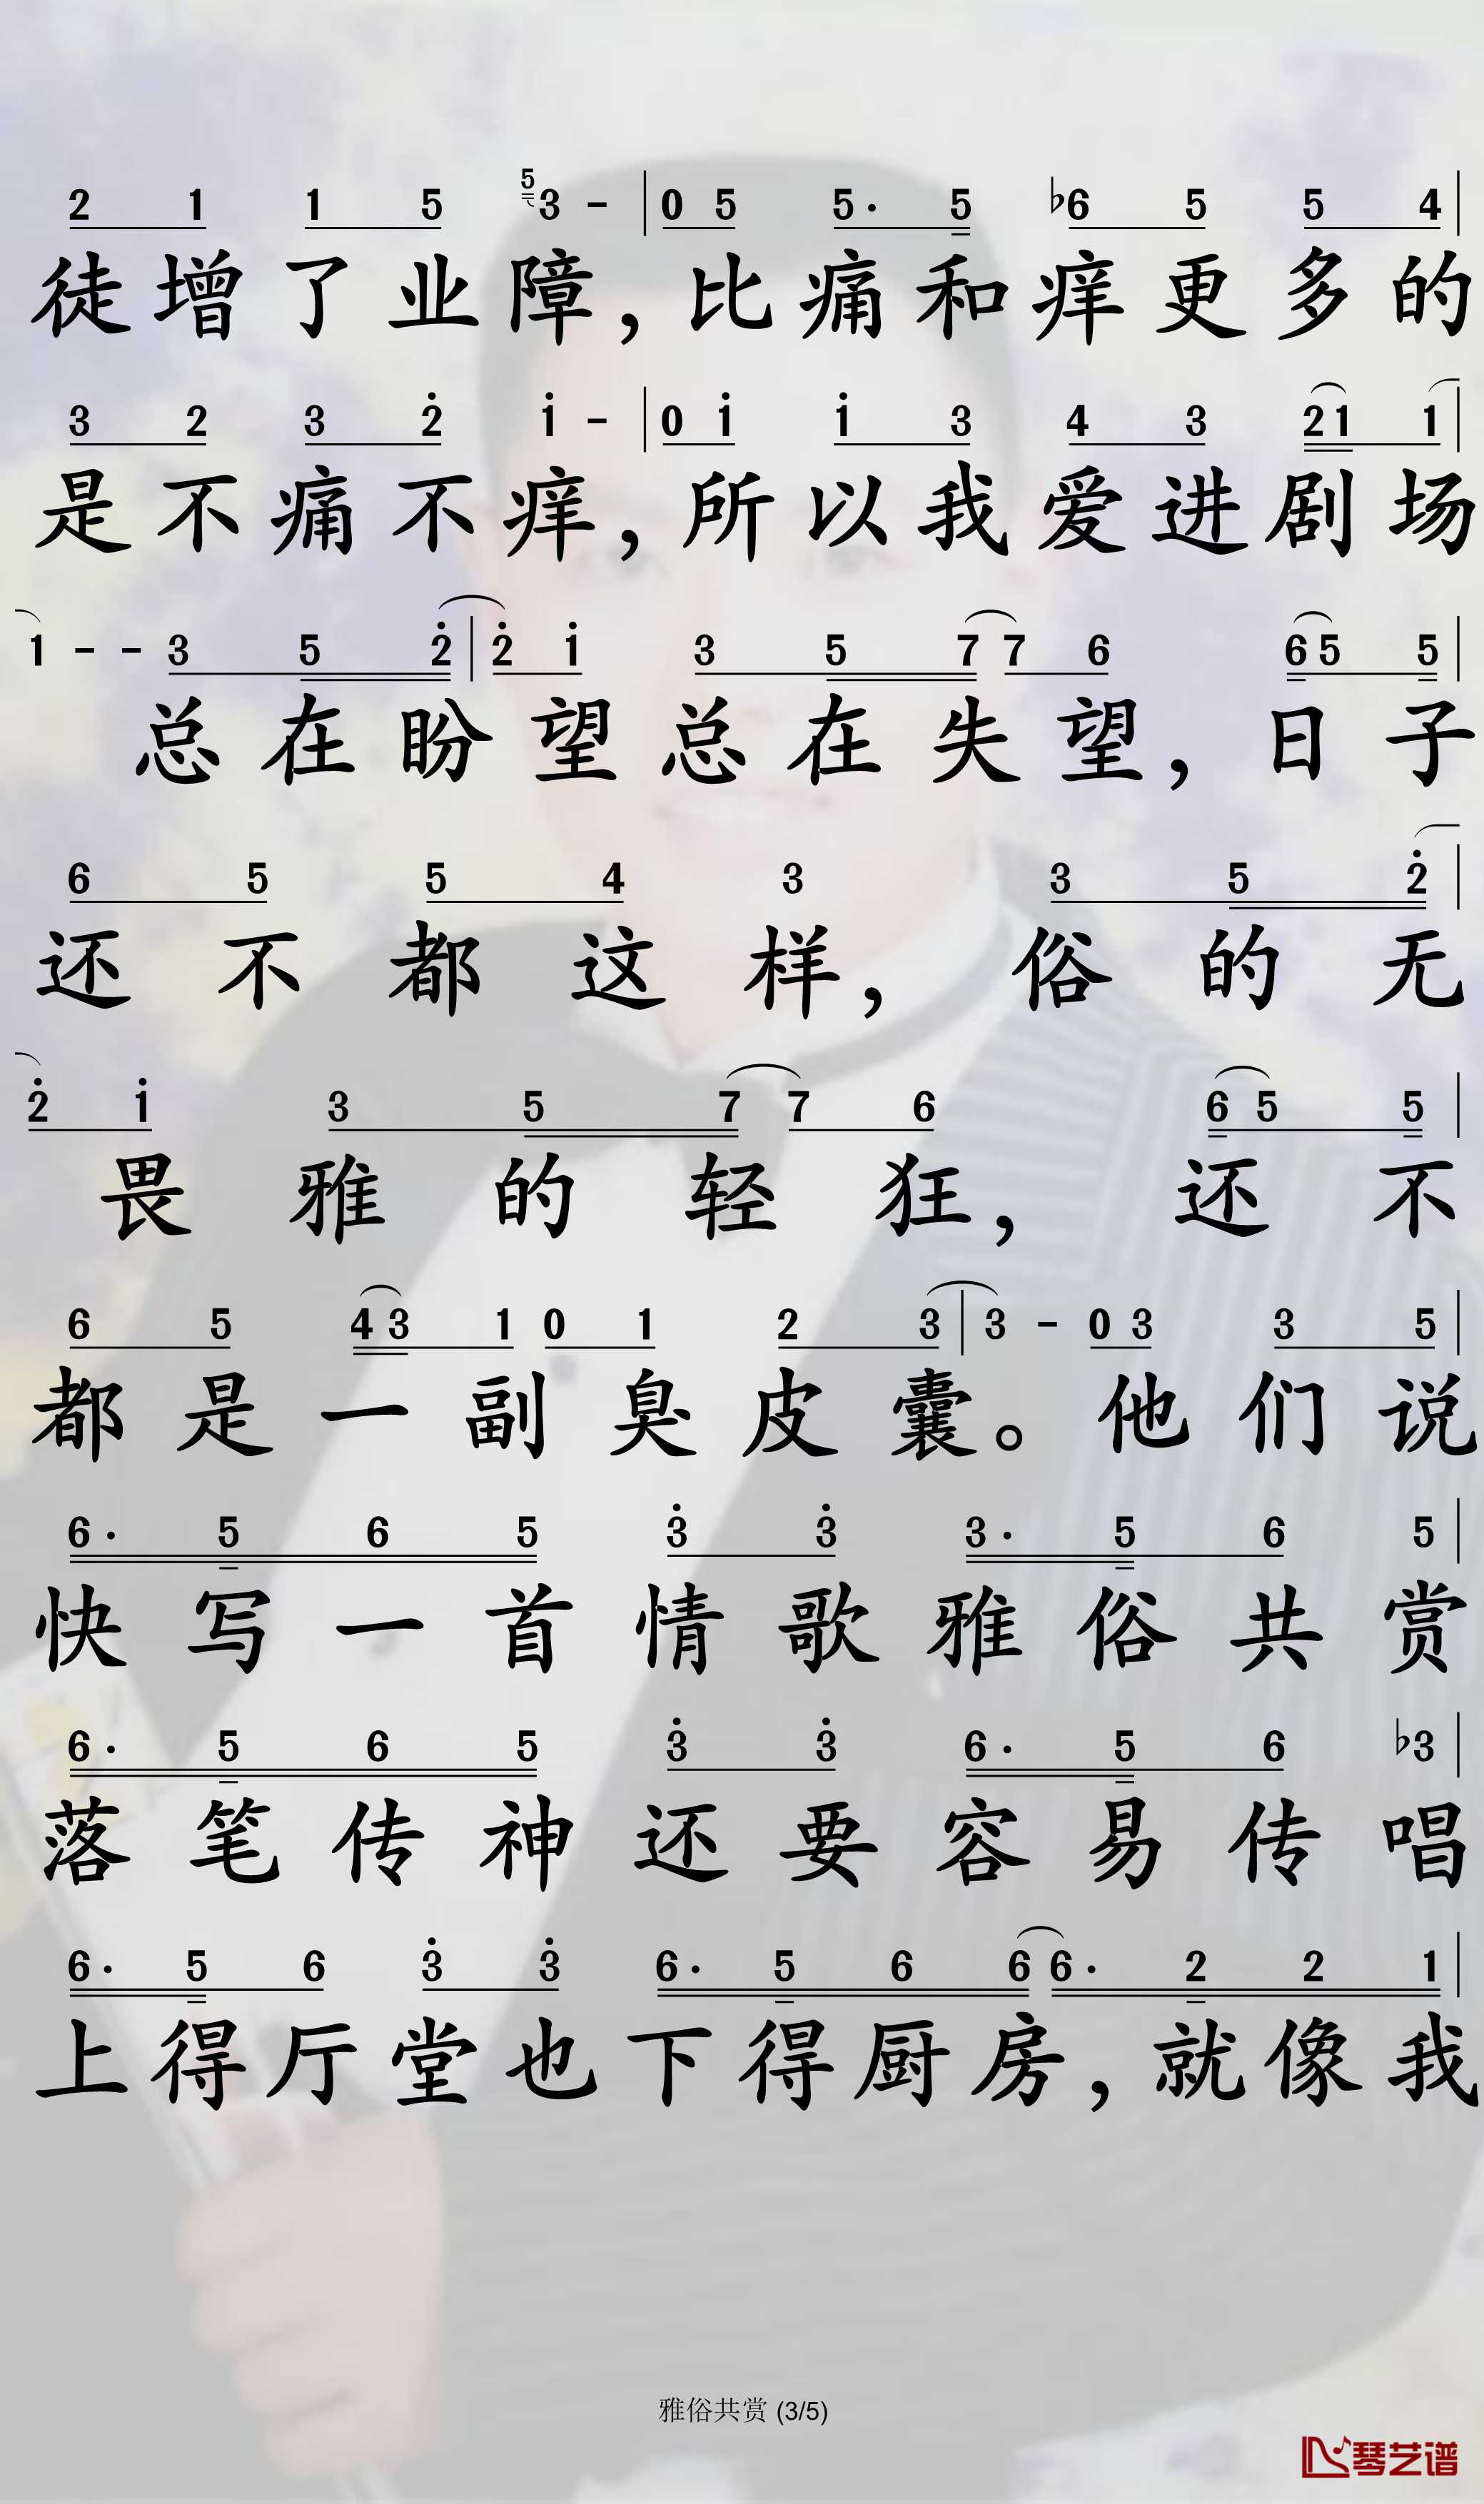 2 1 1 5 5 3 - | 0 5 5· 5 ♭6 5 5 4 |
徒增了业障，比痛和痒更多的
3 2 3 2̇ 1̇ - | 0 1̇ 1̇ 3 4 3 2 1 1 |
是不痛不痒，所以我爱进剧场
1 - - 3 5 2̇ | 2̇ 1̇ 3 5 7 7 6 6 5 5 |
总在盼望总在失望，日子
6 5 5 4 3 3 5 2̇ |
还不都这样，俗的无
2̇ 1̇ 3 5 7 7 6 6 5 5 |
畏雅的轻狂，还不
6 5 4 3 1 0 1 2 3 | 3 - 0 3 3 5 |
都是一副臭皮囊。他们说
6· 5 6 5 3̇ 3̇ 3· 5 6 5 |
快写一首情歌雅俗共赏
6· 5 6 5 3̇ 3̇ 6· 5 6 ♭3 |
落笔传神还要容易传唱
6· 5 6 3̇ 3̇ 6· 5 6 6 6· 2 2 1 |
上得厅堂也下得厨房，就像我
雅俗共赏 (3/5)
琴艺谱